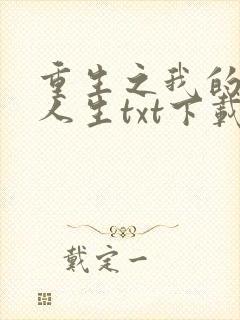 重生之我的
人生txt下载
戴定一